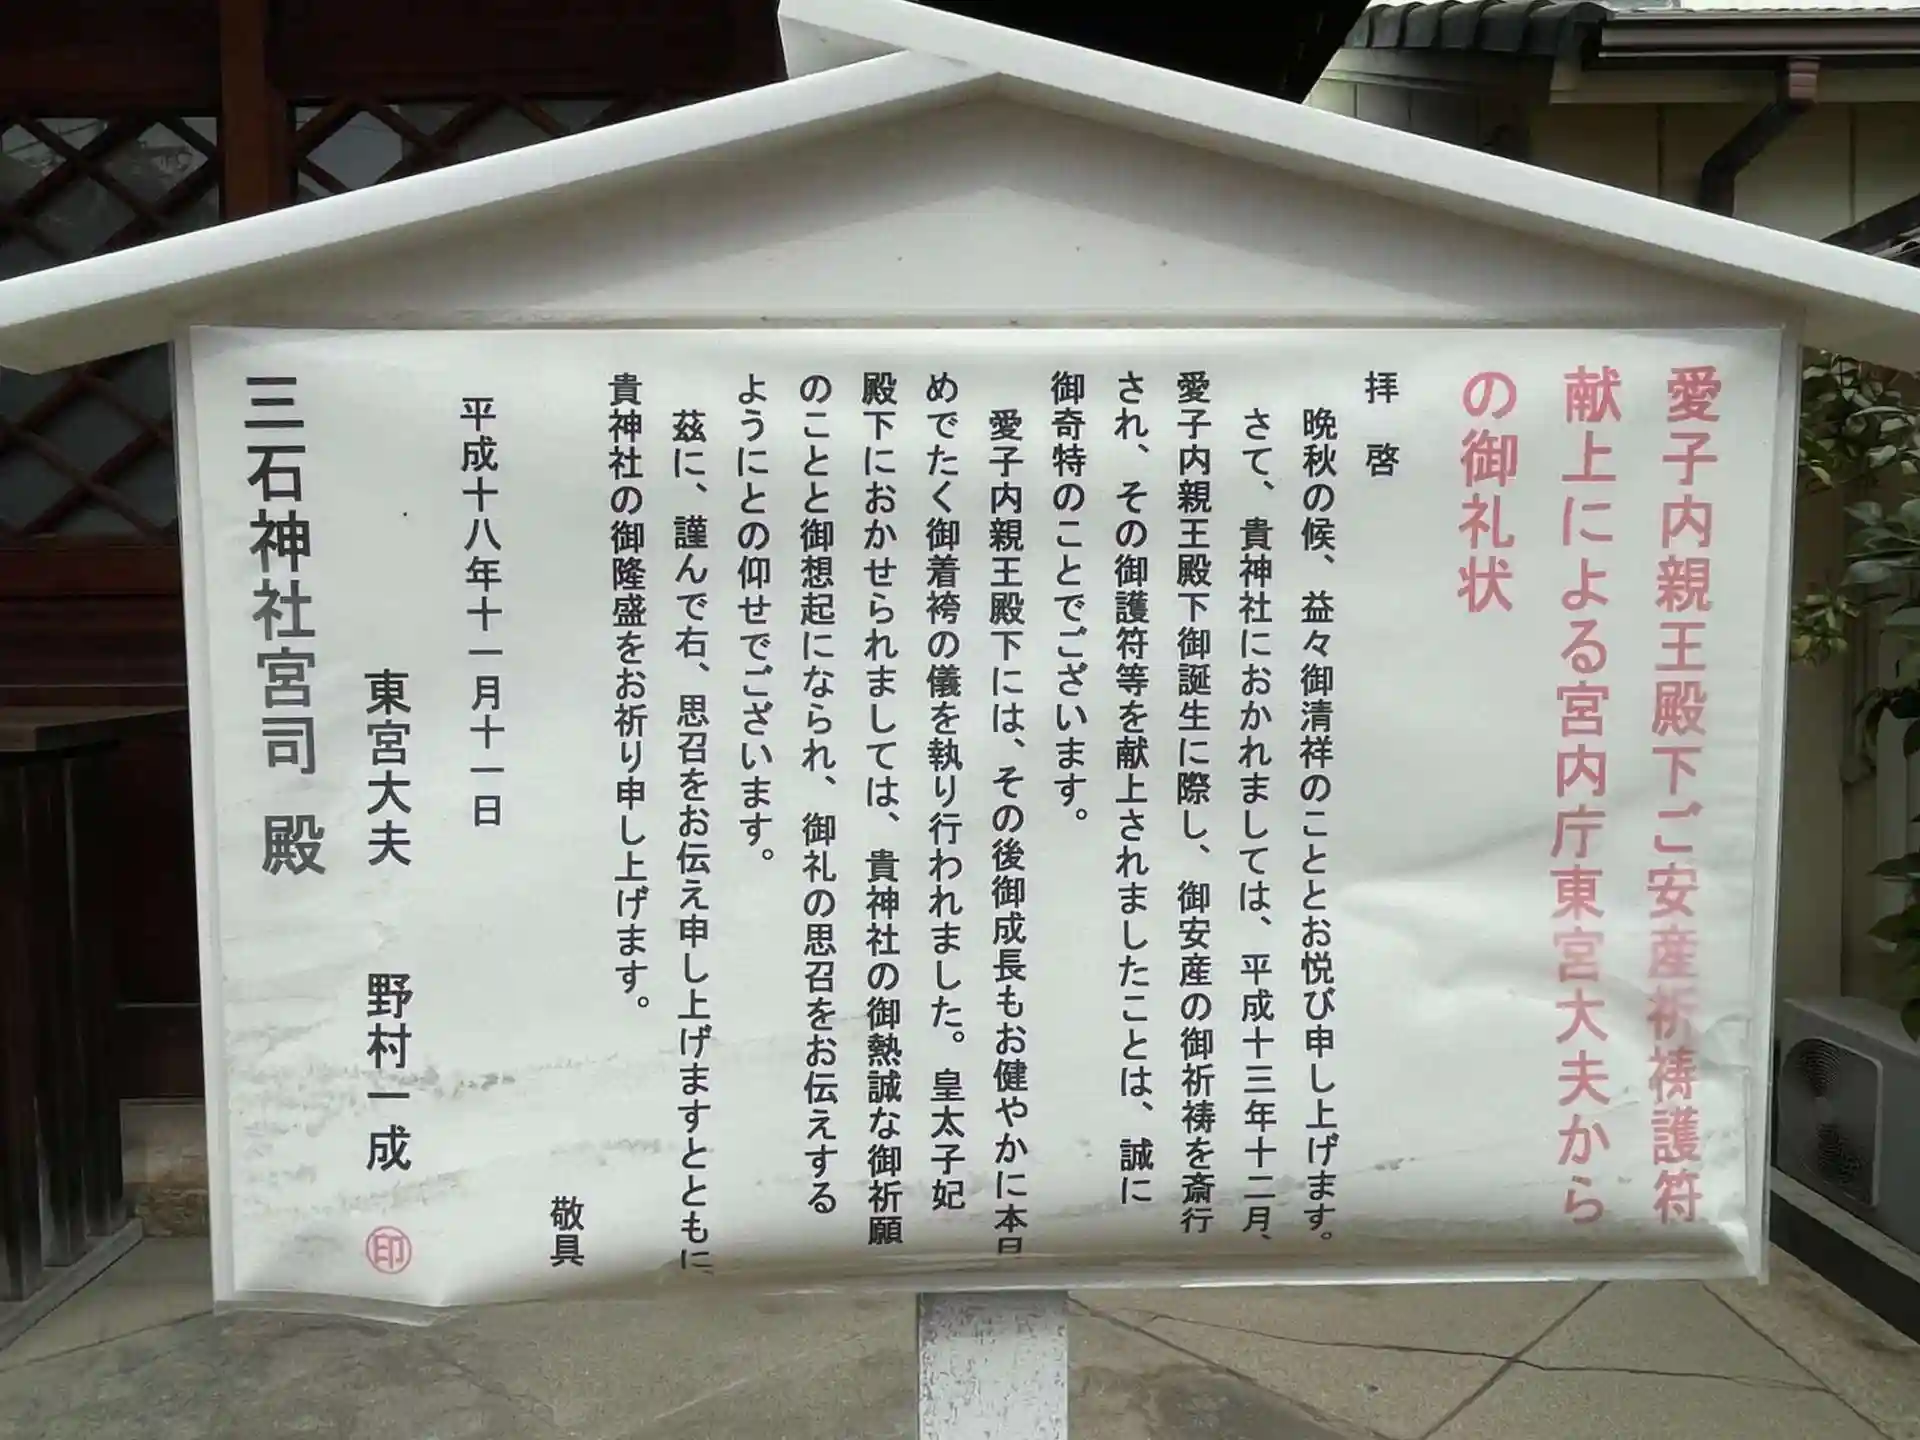 愛子内親王殿下ご安産祈祷護符
献上による宮内庁東宮大夫から
の御礼状
拝 啓
晩秋の候、益々御清祥のこととお悦び申し上げます。
さて、貴神社におかれましては、平成十三年十二月、
愛子内親王殿下御誕生に際し、御安産の御祈祷を斎行
され、その御護符等を献上されましたことは、誠に
御奇特のことでございます。
愛子内親王殿下には、その後御成長もお健やかに本日
めでたく御着袴の儀を執り行われました。皇太子妃
殿下におかせられましては、貴神社の御熱誠な御祈願
のことと御想起になられ、御礼の思召をお伝えする
ようにとの仰せでございます。
茲に、謹んで右、思召をお伝え申し上げますとともに
貴神社の御隆盛をお祈り申し上げます。
敬具
平成十八年十一月十一日
東宮大夫 野村一成 ㊞
三石神社宮司 殿